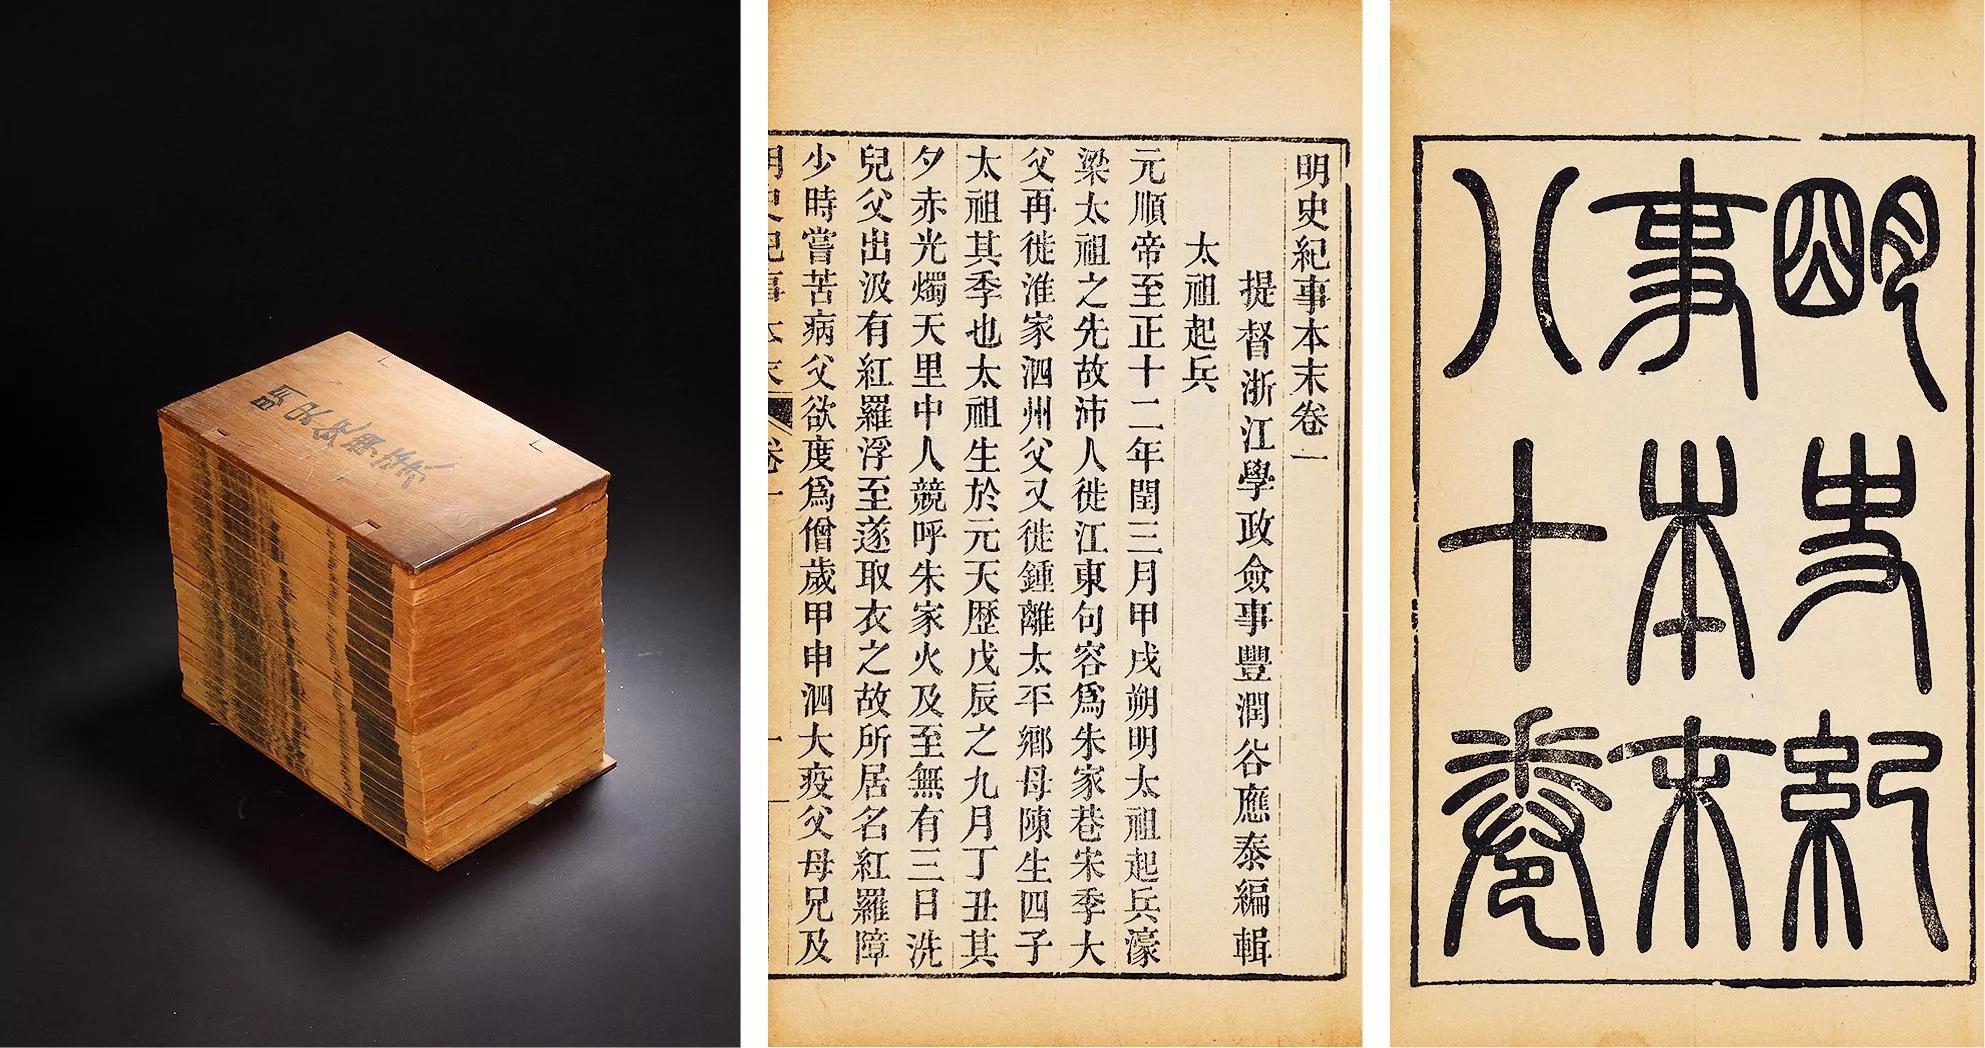 明史紀
事本末
八十卷
明史紀事本末卷一
提督浙江學政僉事豐潤谷應泰編輯
太祖起兵
元順帝至正十二年閏三月甲戌朔明太祖起兵濠
梁太祖之先故沛人徙江東句容爲朱家巷宋季大
父再徙淮家泗州父又徙鍾離太平鄉母陳生四子
太祖其季也太祖生於元天歷戊辰之九月丁丑其
夕赤光燭天里中人競呼朱家火及至無有三日洗
兒父出汲有紅羅浮至遂取衣之故所居名紅羅障
少時嘗苦病父欲度爲僧歲甲申泗大疫父母兄及
明史紀事本末 卷一 一
明史